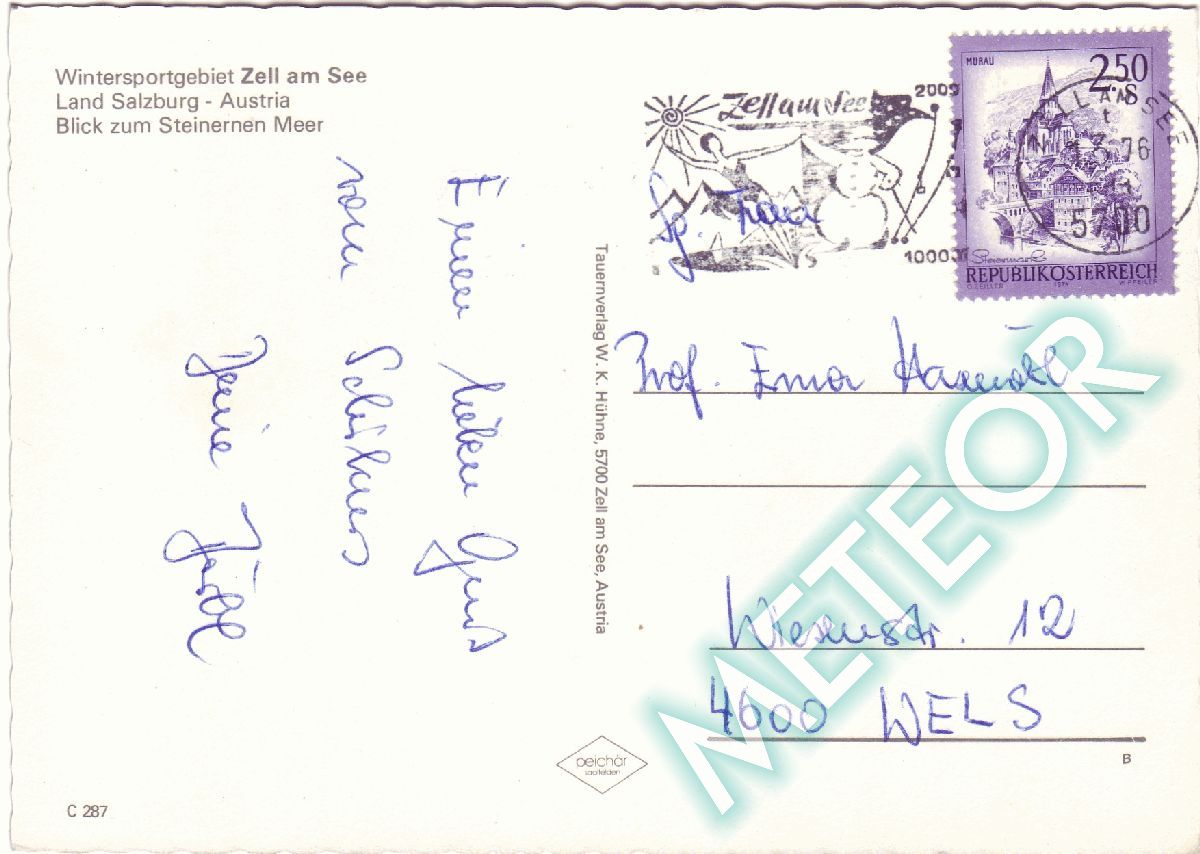 Wintersportgebiet Zell am See
Land Salzburg - Austria
Blick zum Steinernen Meer
Einen lieben Gruß
vom Schikurs
Tauernverlag W. K. Hühne, 5700 Zell am See, Austria
Zell am See
2000
1000
MURAU
2.50
S
Steiermark
REPUBLIK ÖSTERREICH
1974
ZELL AM SEE
76
5700
Frau
Prof. Erna
Wiesenstr. 12
4600 WELS
B
peichär
saalfelden
C 287
METEOR